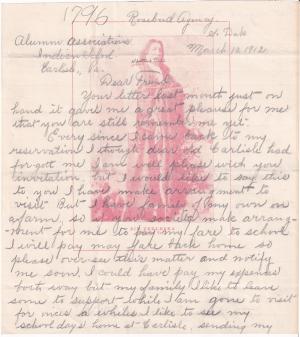 1796
Rosebud Agency
So. Dak
Alumni Association
March 12, 1912
Indian School
Carlisle, Pa.
Dear Friend
Your letter last month just on
hand it gave me a great pleasure for me
that you are still remember me yet.
Every since I came back to my
reservation I though dear old Carlisle had
forgot me I am well please with your
invitation, but I would like to say this
to you I have make arrangment to
visit But I have family of my own on
a farm, so if you society make arrang-
ment for me to pay my fare to school
I will pay my fare back home so
please over-see their matter and notify
me soon. I could have pay my expenses
both way but my family I like to leave
some to support while I am gone to visit
for onces a whiles I like to see my
school days home at Carlisle, sending my